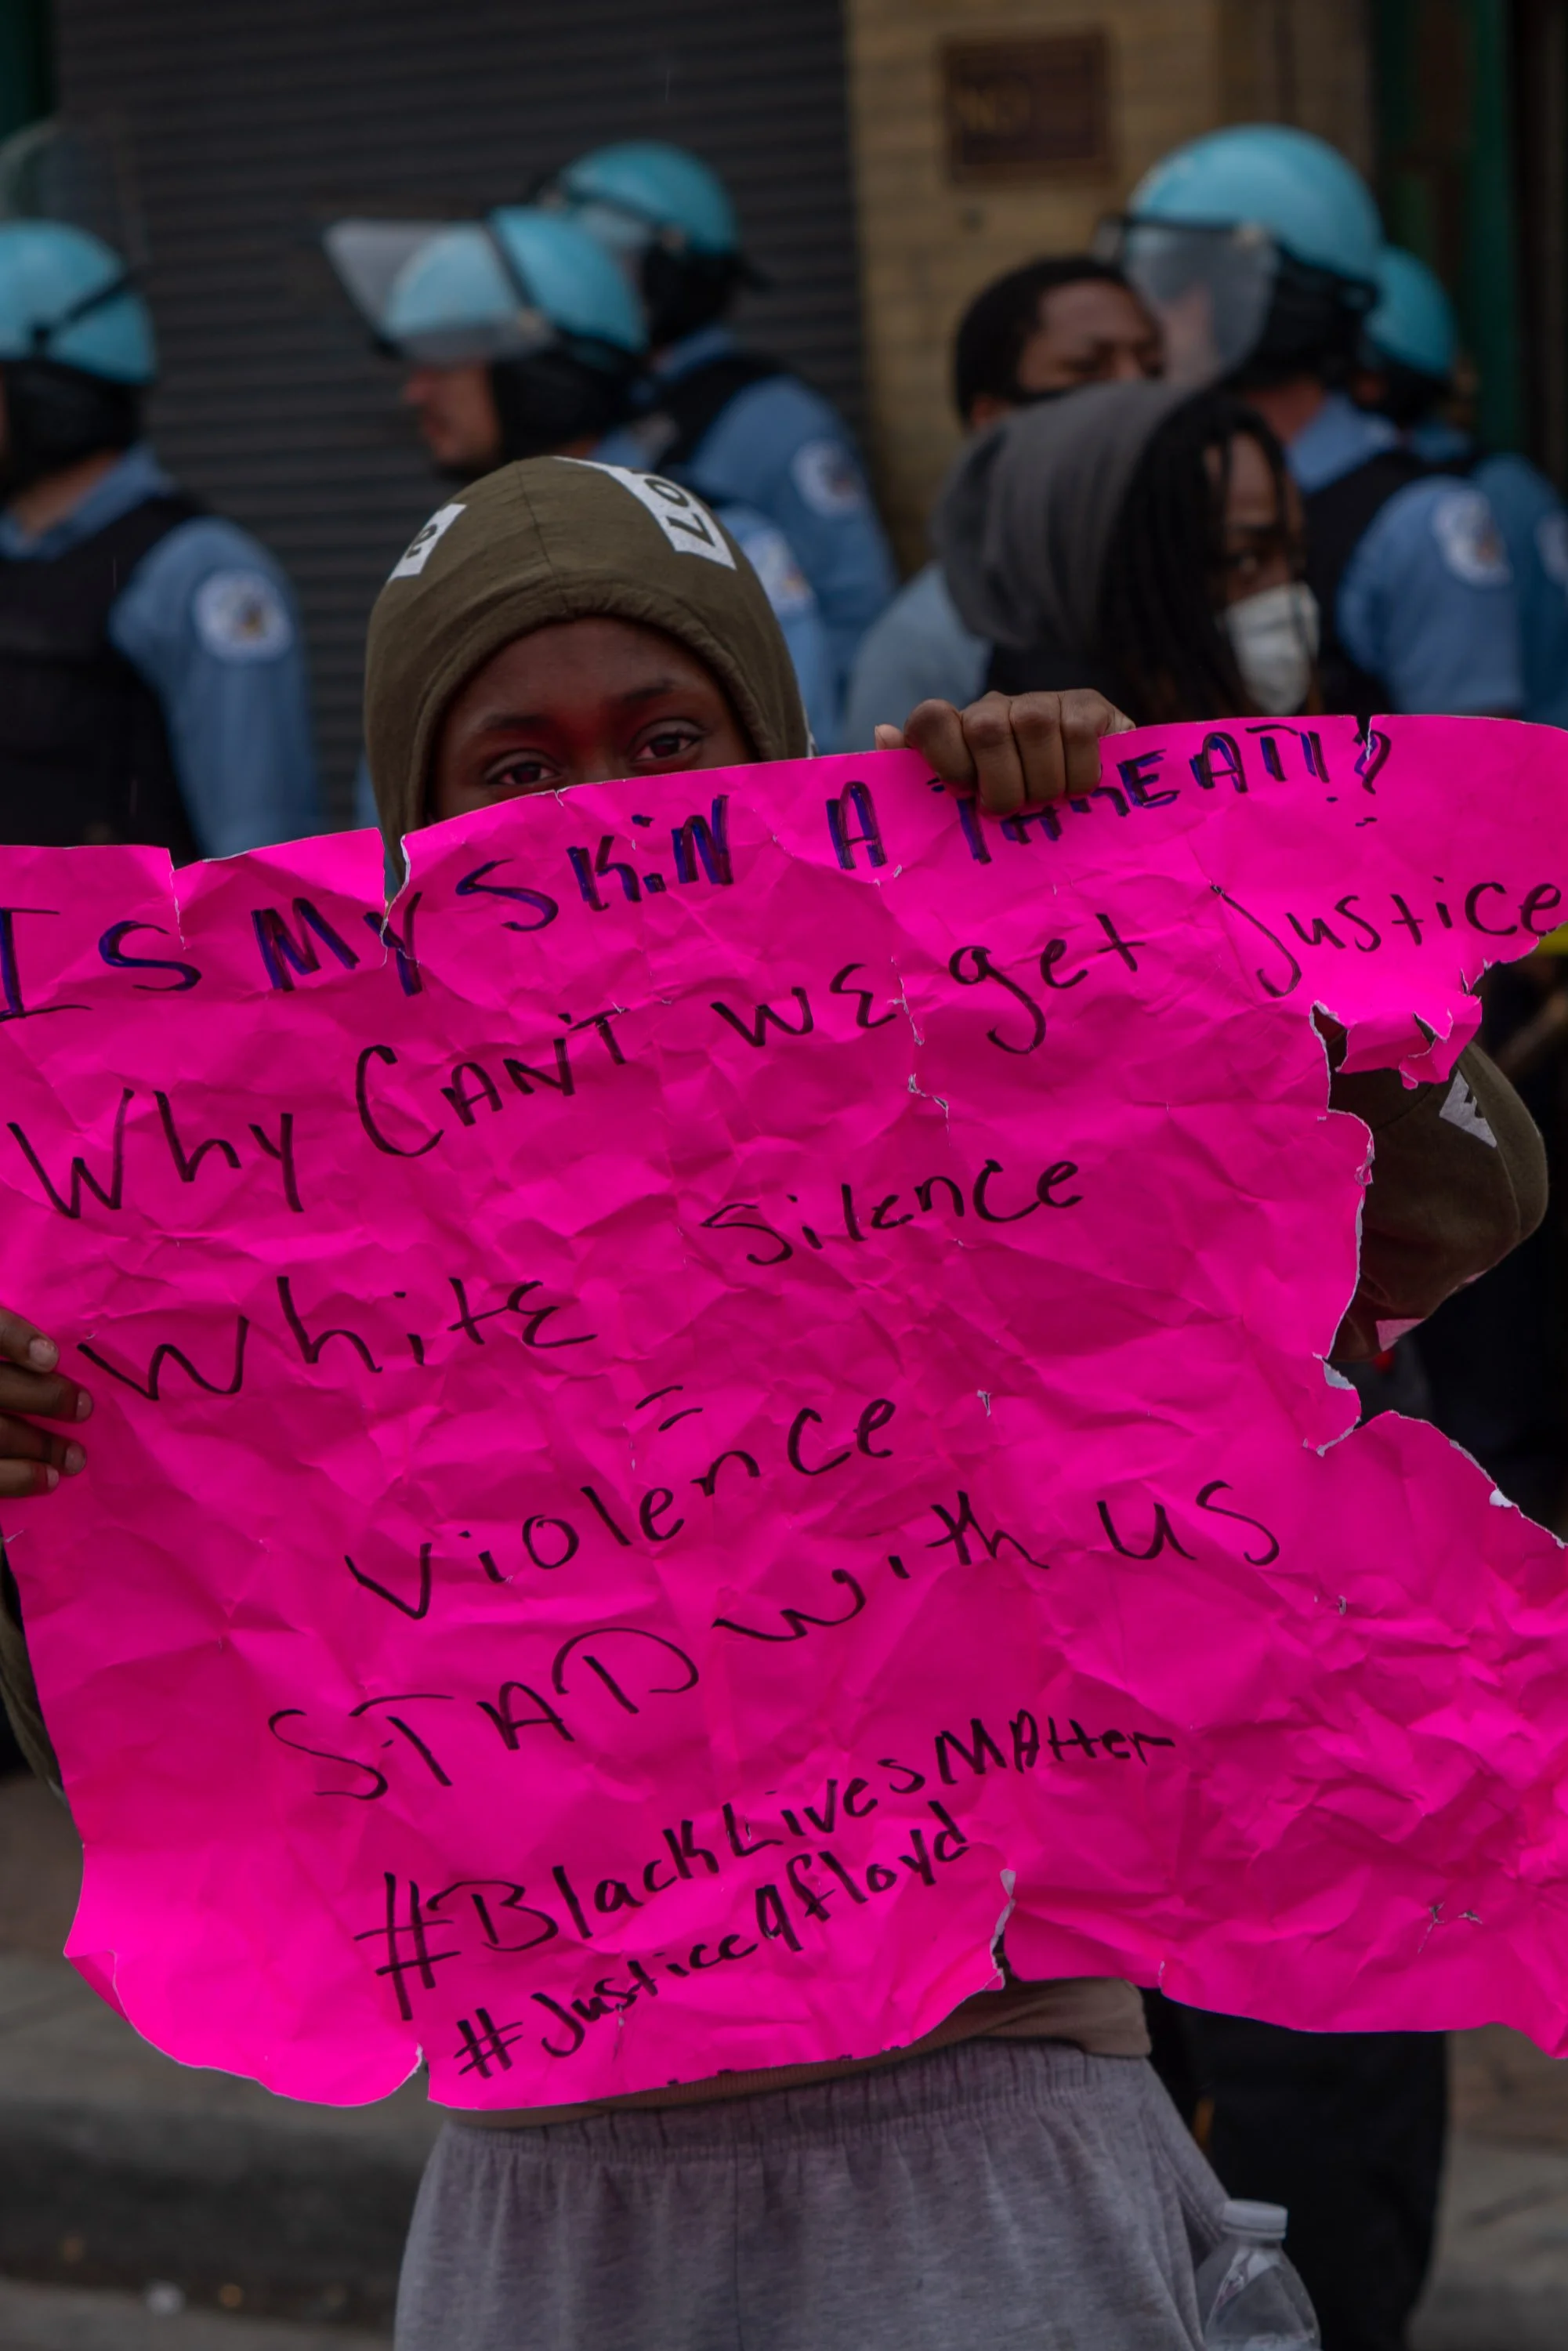 Is My SKiN A THREAT!?
Why CAN'T WE get Justice
White Silence
=
Violence
STAD with us
#BlackLivesMAtter
#Justice4floyd
LO
e